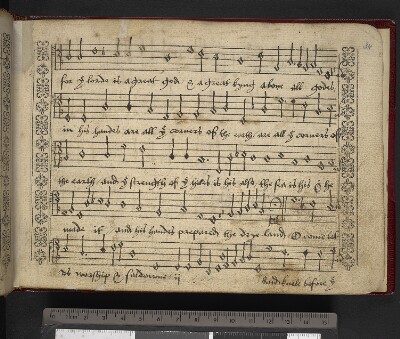 for ye lorde is a great god & a great kyng above all gods
in his handes are all ye corners of the erth, are all ye corners of
the earth and ye strength of ye hiles is his also, the sea is his & he
made it and his handes prepared the drye land, O come let
us worship & falldowne ij
And knele before ye